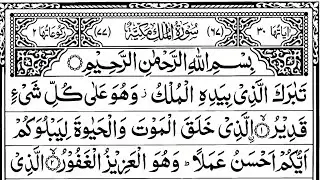 اٰیَاتُهَا ٣٠ (٦٧) سُوْرَةُ الْمُلْكِ مَكِّيَّةٌ (٧٧) رُكُوْعَاتُهَا ٢
بِسْمِ اللّٰهِ الرَّحْمٰنِ الرَّحِيْمِ
تَبٰرَكَ الَّذِيْ بِيَدِهِ الْمُلْكُ ؗ وَهُوَ عَلٰى كُلِّ شَيْءٍ
قَدِيْرُ ۨ ۝١ الَّذِيْ خَلَقَ الْمَوْتَ وَالْحَيٰوةَ لِيَبْلُوَكُمْ
اَيُّكُمْ اَحْسَنُ عَمَلًا ؕ وَهُوَ الْعَزِيْزُ الْغَفُوْرُ ۝٢ الَّذِيْ